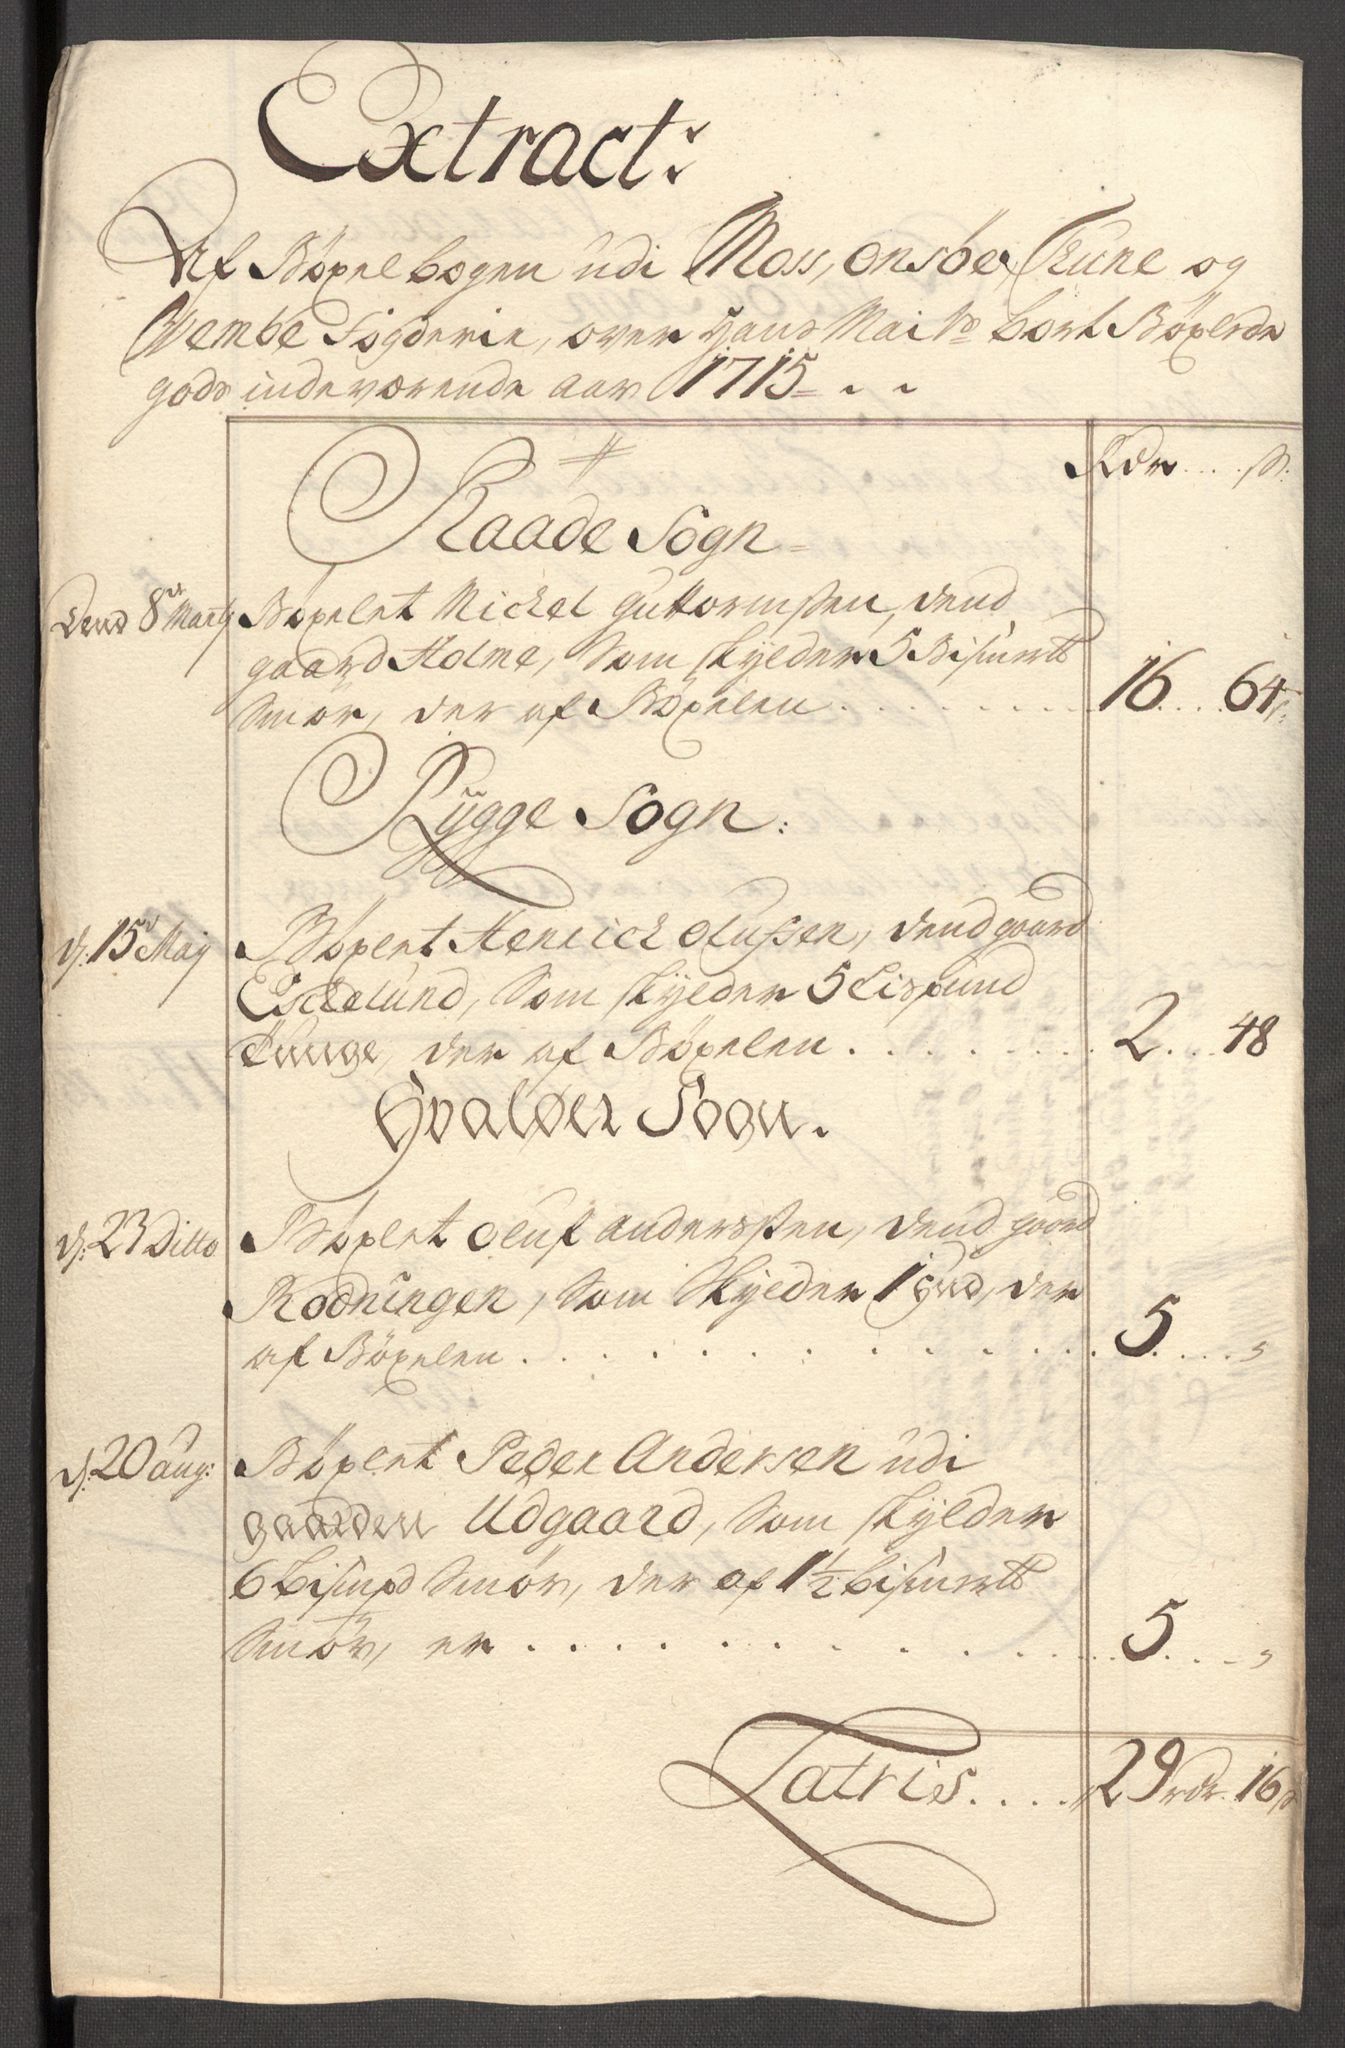 Extract:
Af Bøxelbogen udi Moss, Onsøe, Tune og
Wembe Fogderie, over Hans Maits bort Bøxlede
gods indeværende aar 1715
Rdr ß
Raade Sogn
Dend 8de Marty Bøxelet Michel Guttormssen, dend
gaard Holme, som skylder 5 Bismrtt
Smør, der af Bøxelen 16 64 ß
Rygge Sogn:
d: 15 Maij Bøxlet Henrich Olufsen, dend gaard
Eschelund, som skylder 5 Lispund
Tunge, der af Bøxelen 2 48
Hvaløer Sogn.
d: 23 Ditto Bøxlet Oluf Anderssen, dend gaard
Rødningen, som skylder 1 hud, der
af Bøxelen 5 "
d: 20 aug: Bøxlet Peder Andersen udi
gaarden Udgaard, som skylder
6 bismpd Smør, der af 1½ bismrtt
Smør, er 5 "
Latris 29 rdr. 16 ß